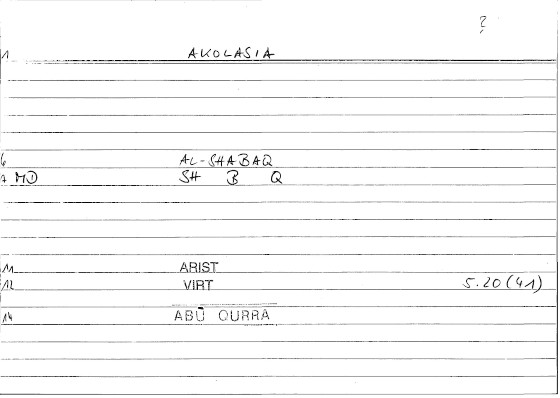 ?
1 AKOLASIA
6 AL-SHABAQ
7 MD SH B Q
11 ARIST
12 VIRT 5.20(41)
14 ABŪ QURRA